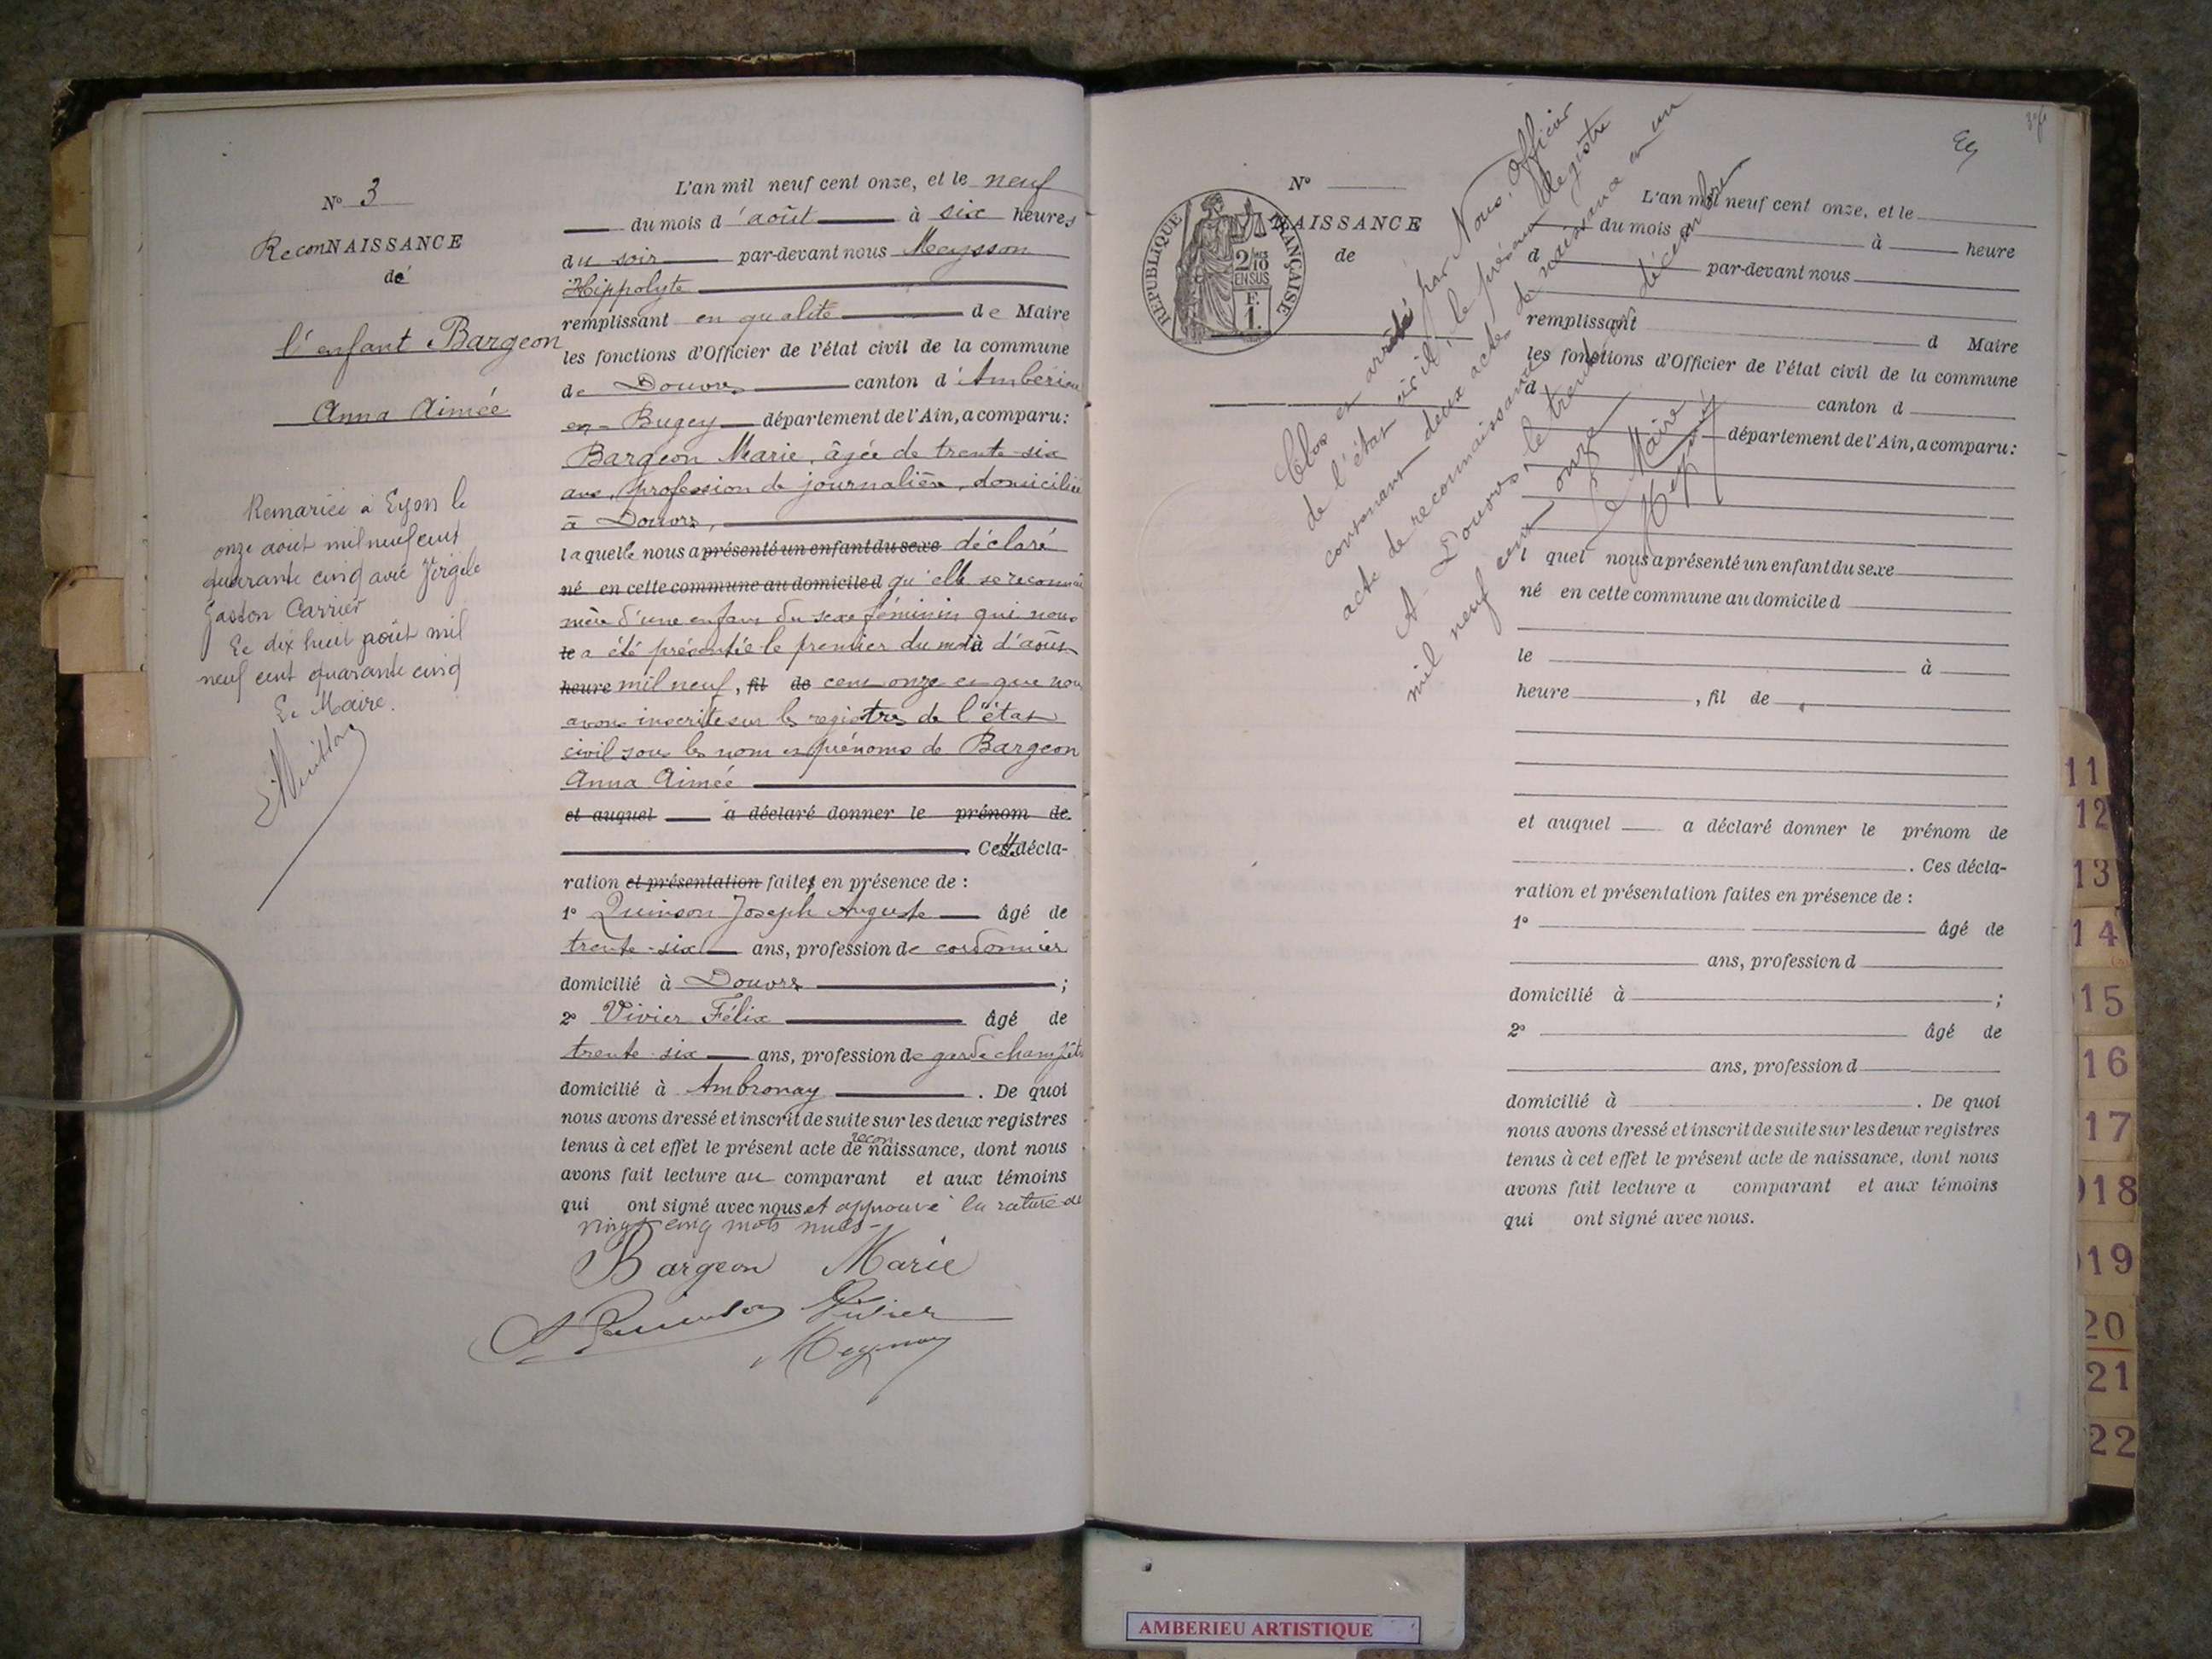 N° 3
ReconNAISSANCE
de
l'enfant Bargeon
Anna Aimée
Remariée à Lyon le
onze août mil neuf cent
quarante cinq avec Virgile
Gaston Carrier
Le dix huit août mil
neuf cent quarante cinq
Le Maire.
L'an mil neuf cent onze, et le neuf
du mois d'août à six heures
du soir par-devant nous Meysson
Hippolyte
remplissant en qualité de Maire
les fonctions d'Officier de l'état civil de la commune
de Douvres canton d'Ambérieu
en-Bugey département de l'Ain, a comparu:
Bargeon Marie, âgée de trente-six
ans, profession de journalière, domiciliée
à Douvres,
laquelle nous a présenté un enfant du sexe déclaré
né en cette commune au domicile d qu'elle se reconnait
mère d'une enfant du sexe féminin qui nous
le a été présentée le premier du mois à d'août
heure mil neuf, fil de cent onze et que nous
avons inscrite sur les registres de l'état
civil sous les nom et prénoms de Bargeon
Anna Aimée
et auquel a déclaré donner le prénom de
. Cette décla-
ration et présentation faites en présence de :
1° Quinson Joseph Auguste âgé de
trente-six ans, profession de cordonnier
domicilié à Douvres ;
2° Vivier Félix âgé de
trente-six ans, profession de garde champêtre
domicilié à Ambronay . De quoi
nous avons dressé et inscrit de suite sur les deux registres
tenus à cet effet le présent acte de reconnaissance, dont nous
avons fait lecture au comparant et aux témoins
qui ont signé avec nous et approuvé la rature de
vingt cinq mots nuls-
Bargeon Marie
Vivier
Meysson
N°
NAISSANCE
de
RÉPUBLIQUE FRANÇAISE
2/10
EN SUS
F.
1.
Clos et arrêté par Nous, Officier
de l'état civil, le présent Registre
contenant deux actes de naissance et un
acte de reconnaissance
A Douvres, le trente un décembre
mil neuf cent onze
Le Maire
Meysson
L'an mil neuf cent onze, et le
du mois à heure
d par-devant nous
remplissant d Maire
les fonctions d'Officier de l'état civil de la commune
d canton d
département de l'Ain, a comparu:
l quel nous a présenté un enfant du sexe
né en cette commune au domicile d
le à
heure , fil de
et auquel a déclaré donner le prénom de
. Ces décla-
ration et présentation faites en présence de :
1° âgé de
ans, profession d
domicilié à ;
2° âgé de
ans, profession d
domicilié à . De quoi
nous avons dressé et inscrit de suite sur les deux registres
tenus à cet effet le présent acte de naissance, dont nous
avons fait lecture a comparant et aux témoins
qui ont signé avec nous.
11
12
13
14
15
16
17
18
19
20
21
22
AMBERIEU ARTISTIQUE